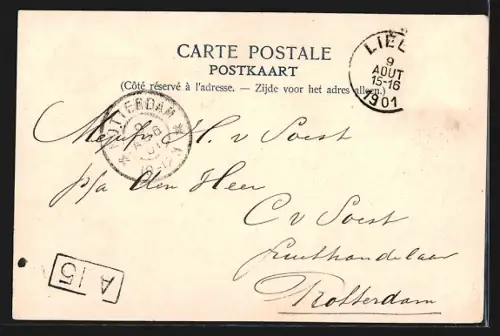 CARTE POSTALE
POSTKAART
(Côté réservé à l'adresse. — Zijde voor het adres alleen.)
LIÈG
9
AOUT
15-16
1901
ROTTERDAM
Mejufr H. v Soest
p/a den Heer
C v Soest
fruithandelaar
Rotterdam
A 15